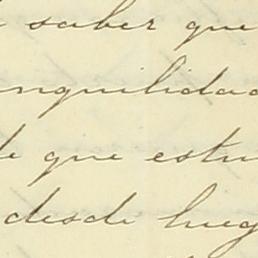 saber que
nquilidad
de que estu
desde lueg